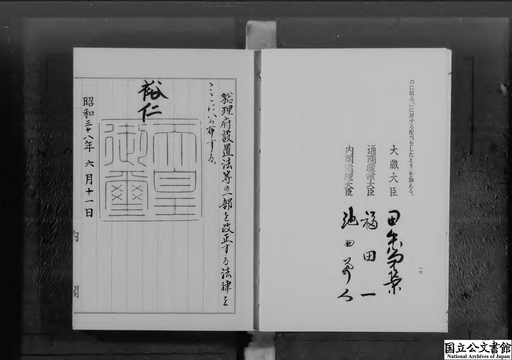 のに限る。）に対する配当をしたとき」を加える。
大蔵大臣 田中角榮
通商産業大臣 福田一
内閣総理大臣 池田勇人
一六
総理府設置法等の一部を改正する法律を
ここに公布する。
裕仁
天皇御璽
昭和三十八年六月十一日
内閣
国立公文書館
National Archives of Japan